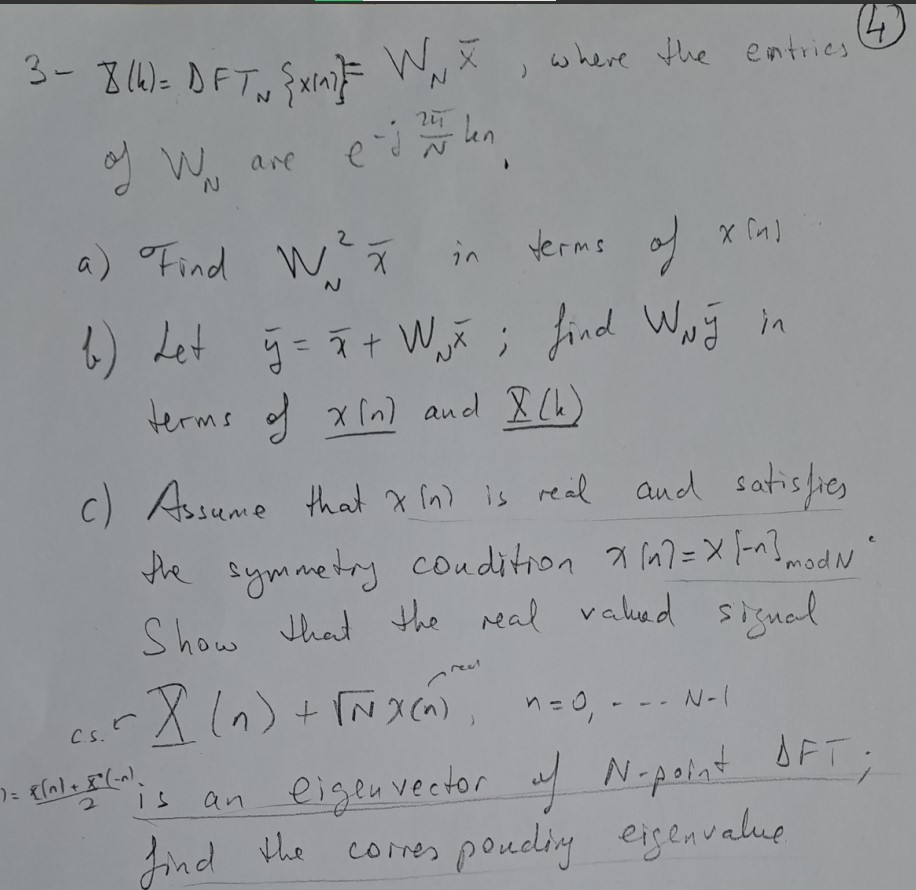 4
3- X(k)= DFT_N {x[n]}= W_N x̄ , where the entries
of W_N are e^{-j 2π/N kn}.
a) Find W_N^2 x̄ in terms of x[n]
b) Let ȳ = x̄ + W_N x̄ ; find W_N ȳ in
terms of x[n] and X(k)
c) Assume that x[n] is real and satisfies
the symmetry condition x[n]=x[-n]_{mod N}.
Show that the real valued signal
real
c.s. X(n) + √N x(n), n=0, ---- N-1
)= X(n)+X*(-n) / 2
is an eigenvector of N-point DFT;
find the corresponding eigenvalue